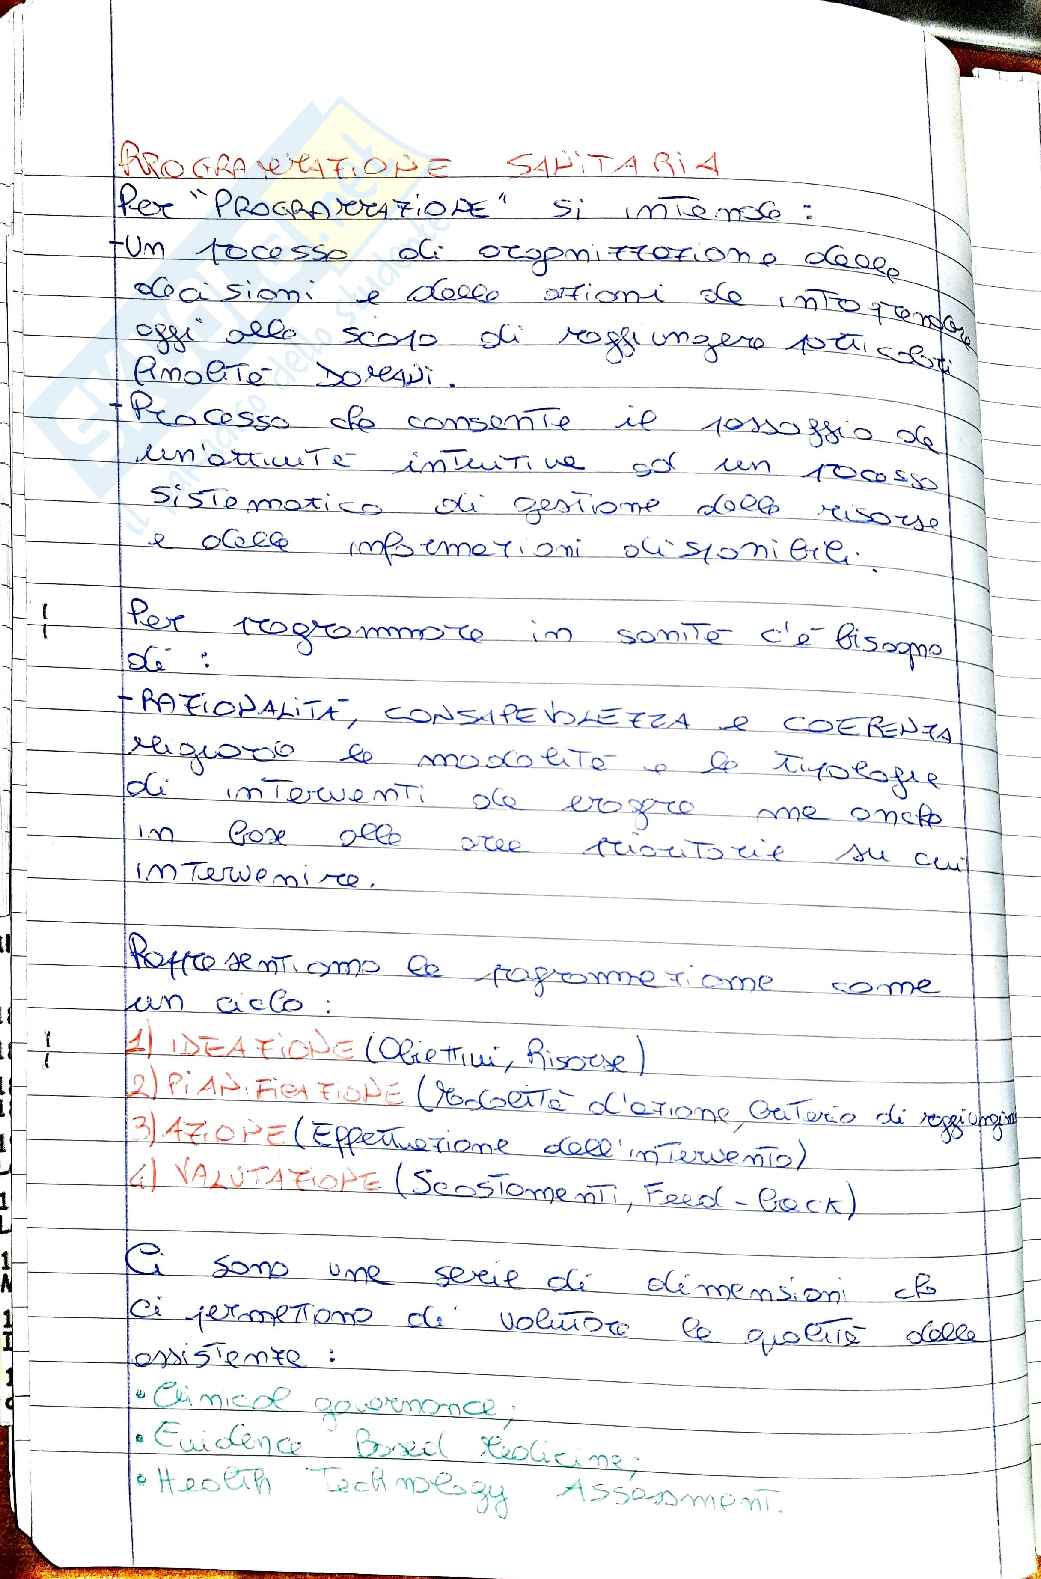 PROGRAMMAZIONE SANITARIA
Per "PROGRAMMAZIONE" si intende:
-Un processo di organizzazione delle
decisioni e delle azioni da intraprendere
oggi allo scopo di raggiungere particolari
finalità DOMANI.
-Processo che consente il passaggio da
un'attività intuitiva ad un processo
sistematico di gestione delle risorse
e delle informazioni disponibili.
Per programmare in sanità c'è bisogno
di:
-RAZIONALITÀ, CONSAPEVOLEZZA e COERENZA
riguardo le modalità e le tipologie
di interventi da erogare ma anche
in base alle aree prioritarie su cui
intervenire.
Rappresentiamo la programmazione come
un ciclo:
1) IDEAZIONE (Obiettivi, Risorse)
2) PIANIFICAZIONE (Modalità d'azione, Criterio di
3) AZIONE (Effettuazione dell'intervento)
4) VALUTAZIONE (Scostamenti, Feed-back)
Ci sono una serie di dimensioni che
ci permettono di valutare la qualità delle
assistenze:
• Clinical governance;
• Evidence Based Medicine;
• Health Technology Assessment.